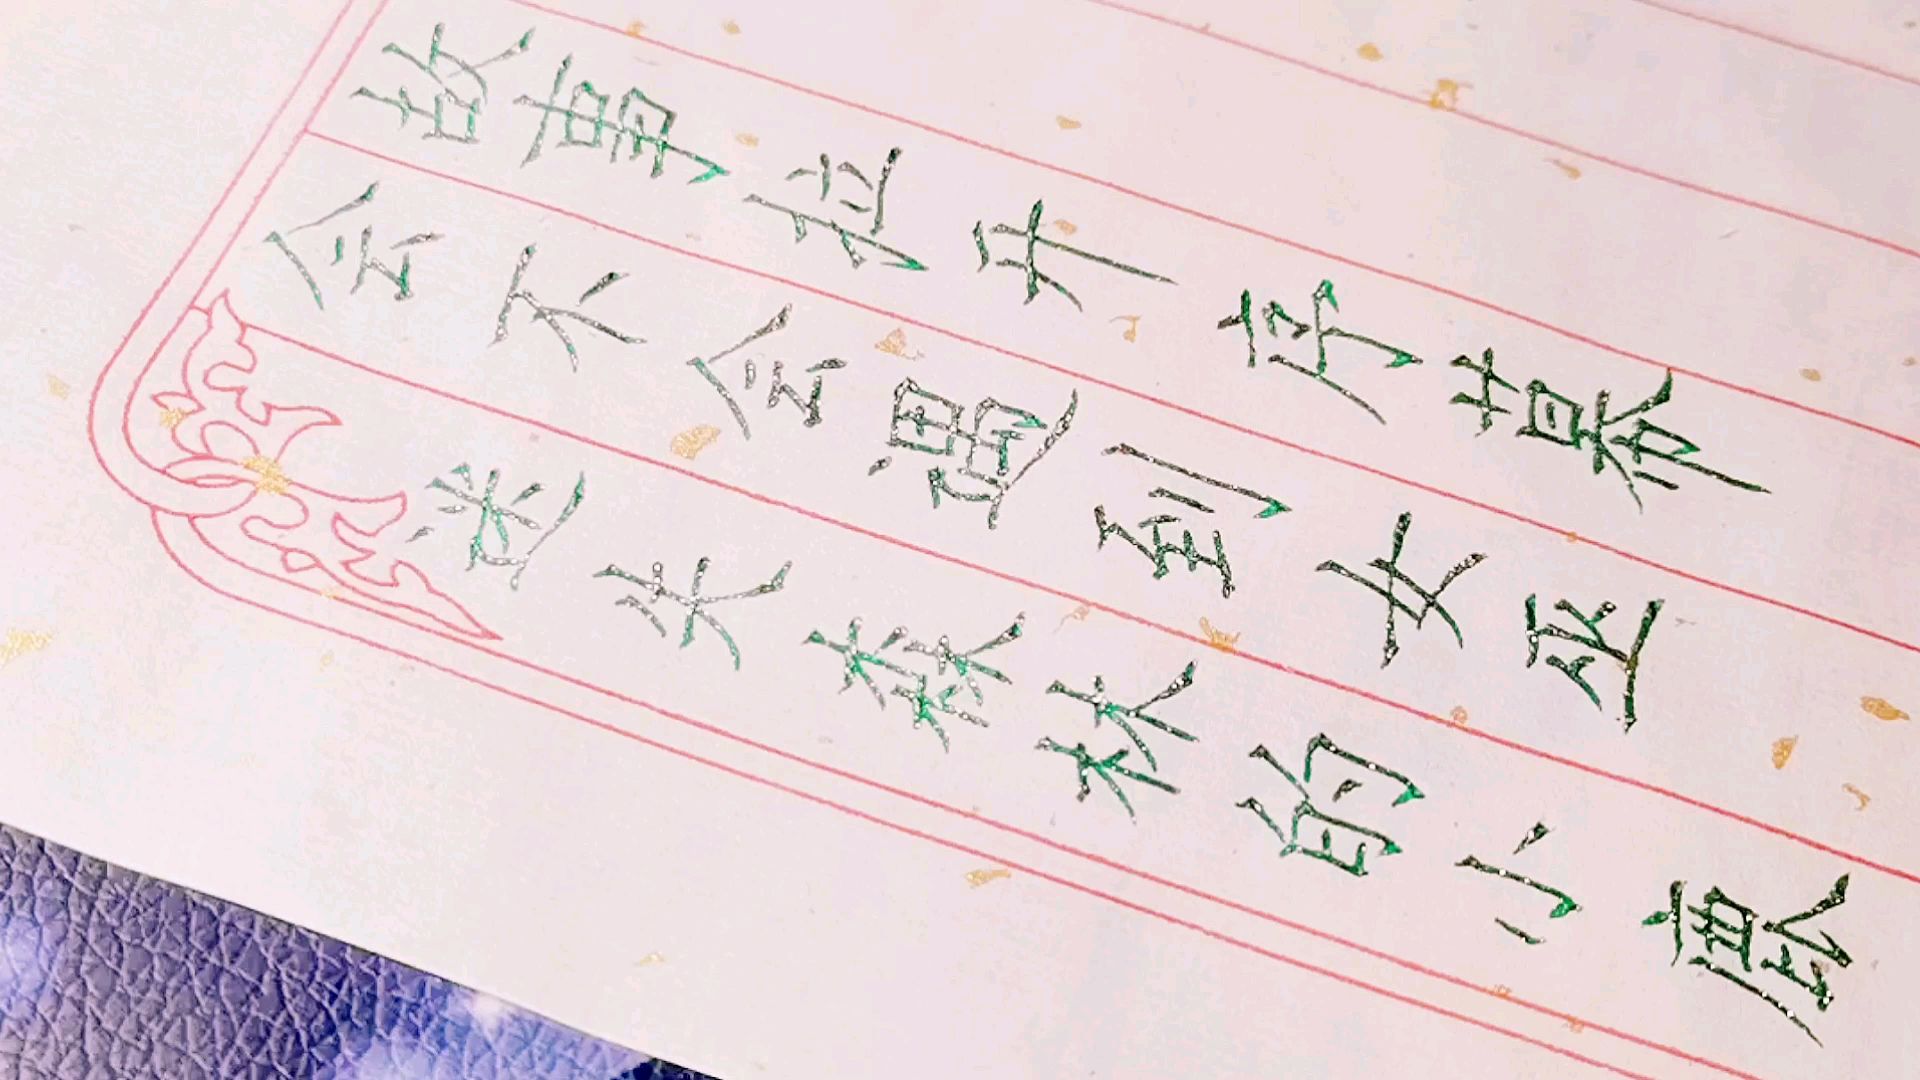 故事拉开序幕
会不会遇到女巫
迷失森林的小鹿